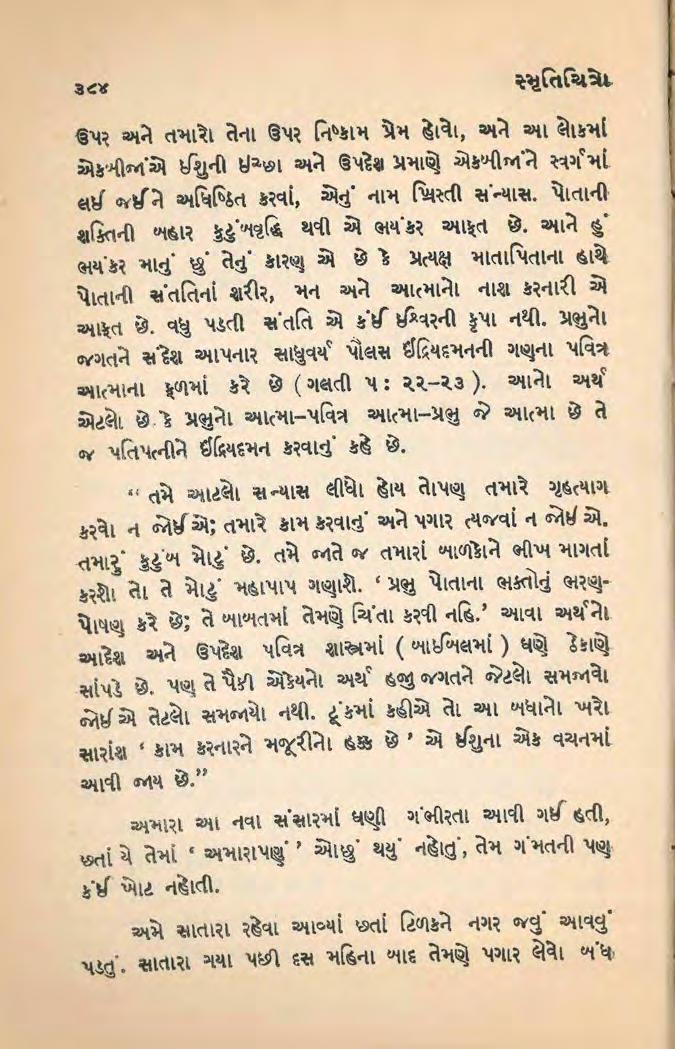 ૩૮૪
સ્મૃતિચિત્રો
ઉપર અને તમારો તેના ઉપર નિષ્કામ પ્રેમ હોવો, અને આ લોકમાં
એકબીજાંએ ઈશુની ઇચ્છા અને ઉપદેશ પ્રમાણે એકબીજાંને સ્વર્ગમાં
લઈ જઈને અધિષ્ઠિત કરવાં, એનું નામ ખ્રિસ્તી સંન્યાસ. પોતાની
શક્તિની બહાર કુટુંબવૃદ્ધિ થવી એ ભયંકર આફત છે. આને હું
ભયંકર માનું છું તેનું કારણ એ છે કે પ્રત્યક્ષ માતાપિતાના હાથે
પોતાની સંતતિનાં શરીર, મન અને આત્માનો નાશ કરનારી એ
આફત છે. વધુ પડતી સંતતિ એ કંઈ ઈશ્વરની કૃપા નથી. પ્રભુનો
જગતને સંદેશ આપનાર સાધુવર્ય પૌલસ ઈંદ્રિયદમનની ગણના પવિત્ર
આત્માના ફળમાં કરે છે (ગલતી ૫ : ૨૨–૨૩ ). આનો અર્થ
એટલો છે કે પ્રભુનો આત્મા–પવિત્ર આત્મા–પ્રભુ જે આત્મા છે તે
જ પતિપત્નીને ઈંદ્રિયદમન કરવાનું કહે છે.
“ તમે આટલો સન્યાસ લીધો હોય તોપણ તમારે ગૃહત્યાગ
કરવો ન જોઈએ; તમારે કામ કરવાનું અને પગાર ત્યજવાં ન જોઈએ.
તમારું કુટુંબ મોટું છે. તમે જાતે જ તમારાં બાળકોને ભીખ માગતાં
કરશો તો તે મોટું મહાપાપ ગણાશે. ‘ પ્રભુ પોતાના ભક્તોનું ભરણ-
પોષણ કરે છે; તે બાબતમાં તેમણે ચિંતા કરવી નહિ.’ આવા અર્થનો
આદેશ અને ઉપદેશ પવિત્ર શાસ્ત્રમાં ( બાઈબલમાં ) ઘણે ઠેકાણે
સાંપડે છે. પણ તે પૈકી એકેયનો અર્થ હજુ જગતને જેટલો સમજાવો
જોઈએ તેટલો સમજાયો નથી. ટૂંકમાં કહીએ તો આ બધાનો ખરો
સારાંશ ‘ કામ કરનારને મજૂરીનો હક્ક છે ’ એ ઈશુના એક વચનમાં
આવી જાય છે.”
અમારા આ નવા સંસારમાં ઘણી ગંભીરતા આવી ગઈ હતી,
છતાં યે તેમાં ‘ અમારાપણું ’ ઓછું થયું નહોતું, તેમ ગંમતની પણ
કંઈ ખોટ નહોતી.
અમે સાતારા રહેવા આવ્યાં છતાં ટિળકને નગર જવું આવવું
પડતું. સાતારા ગયા પછી દસ મહિના બાદ તેમણે પગાર લેવો બંધ